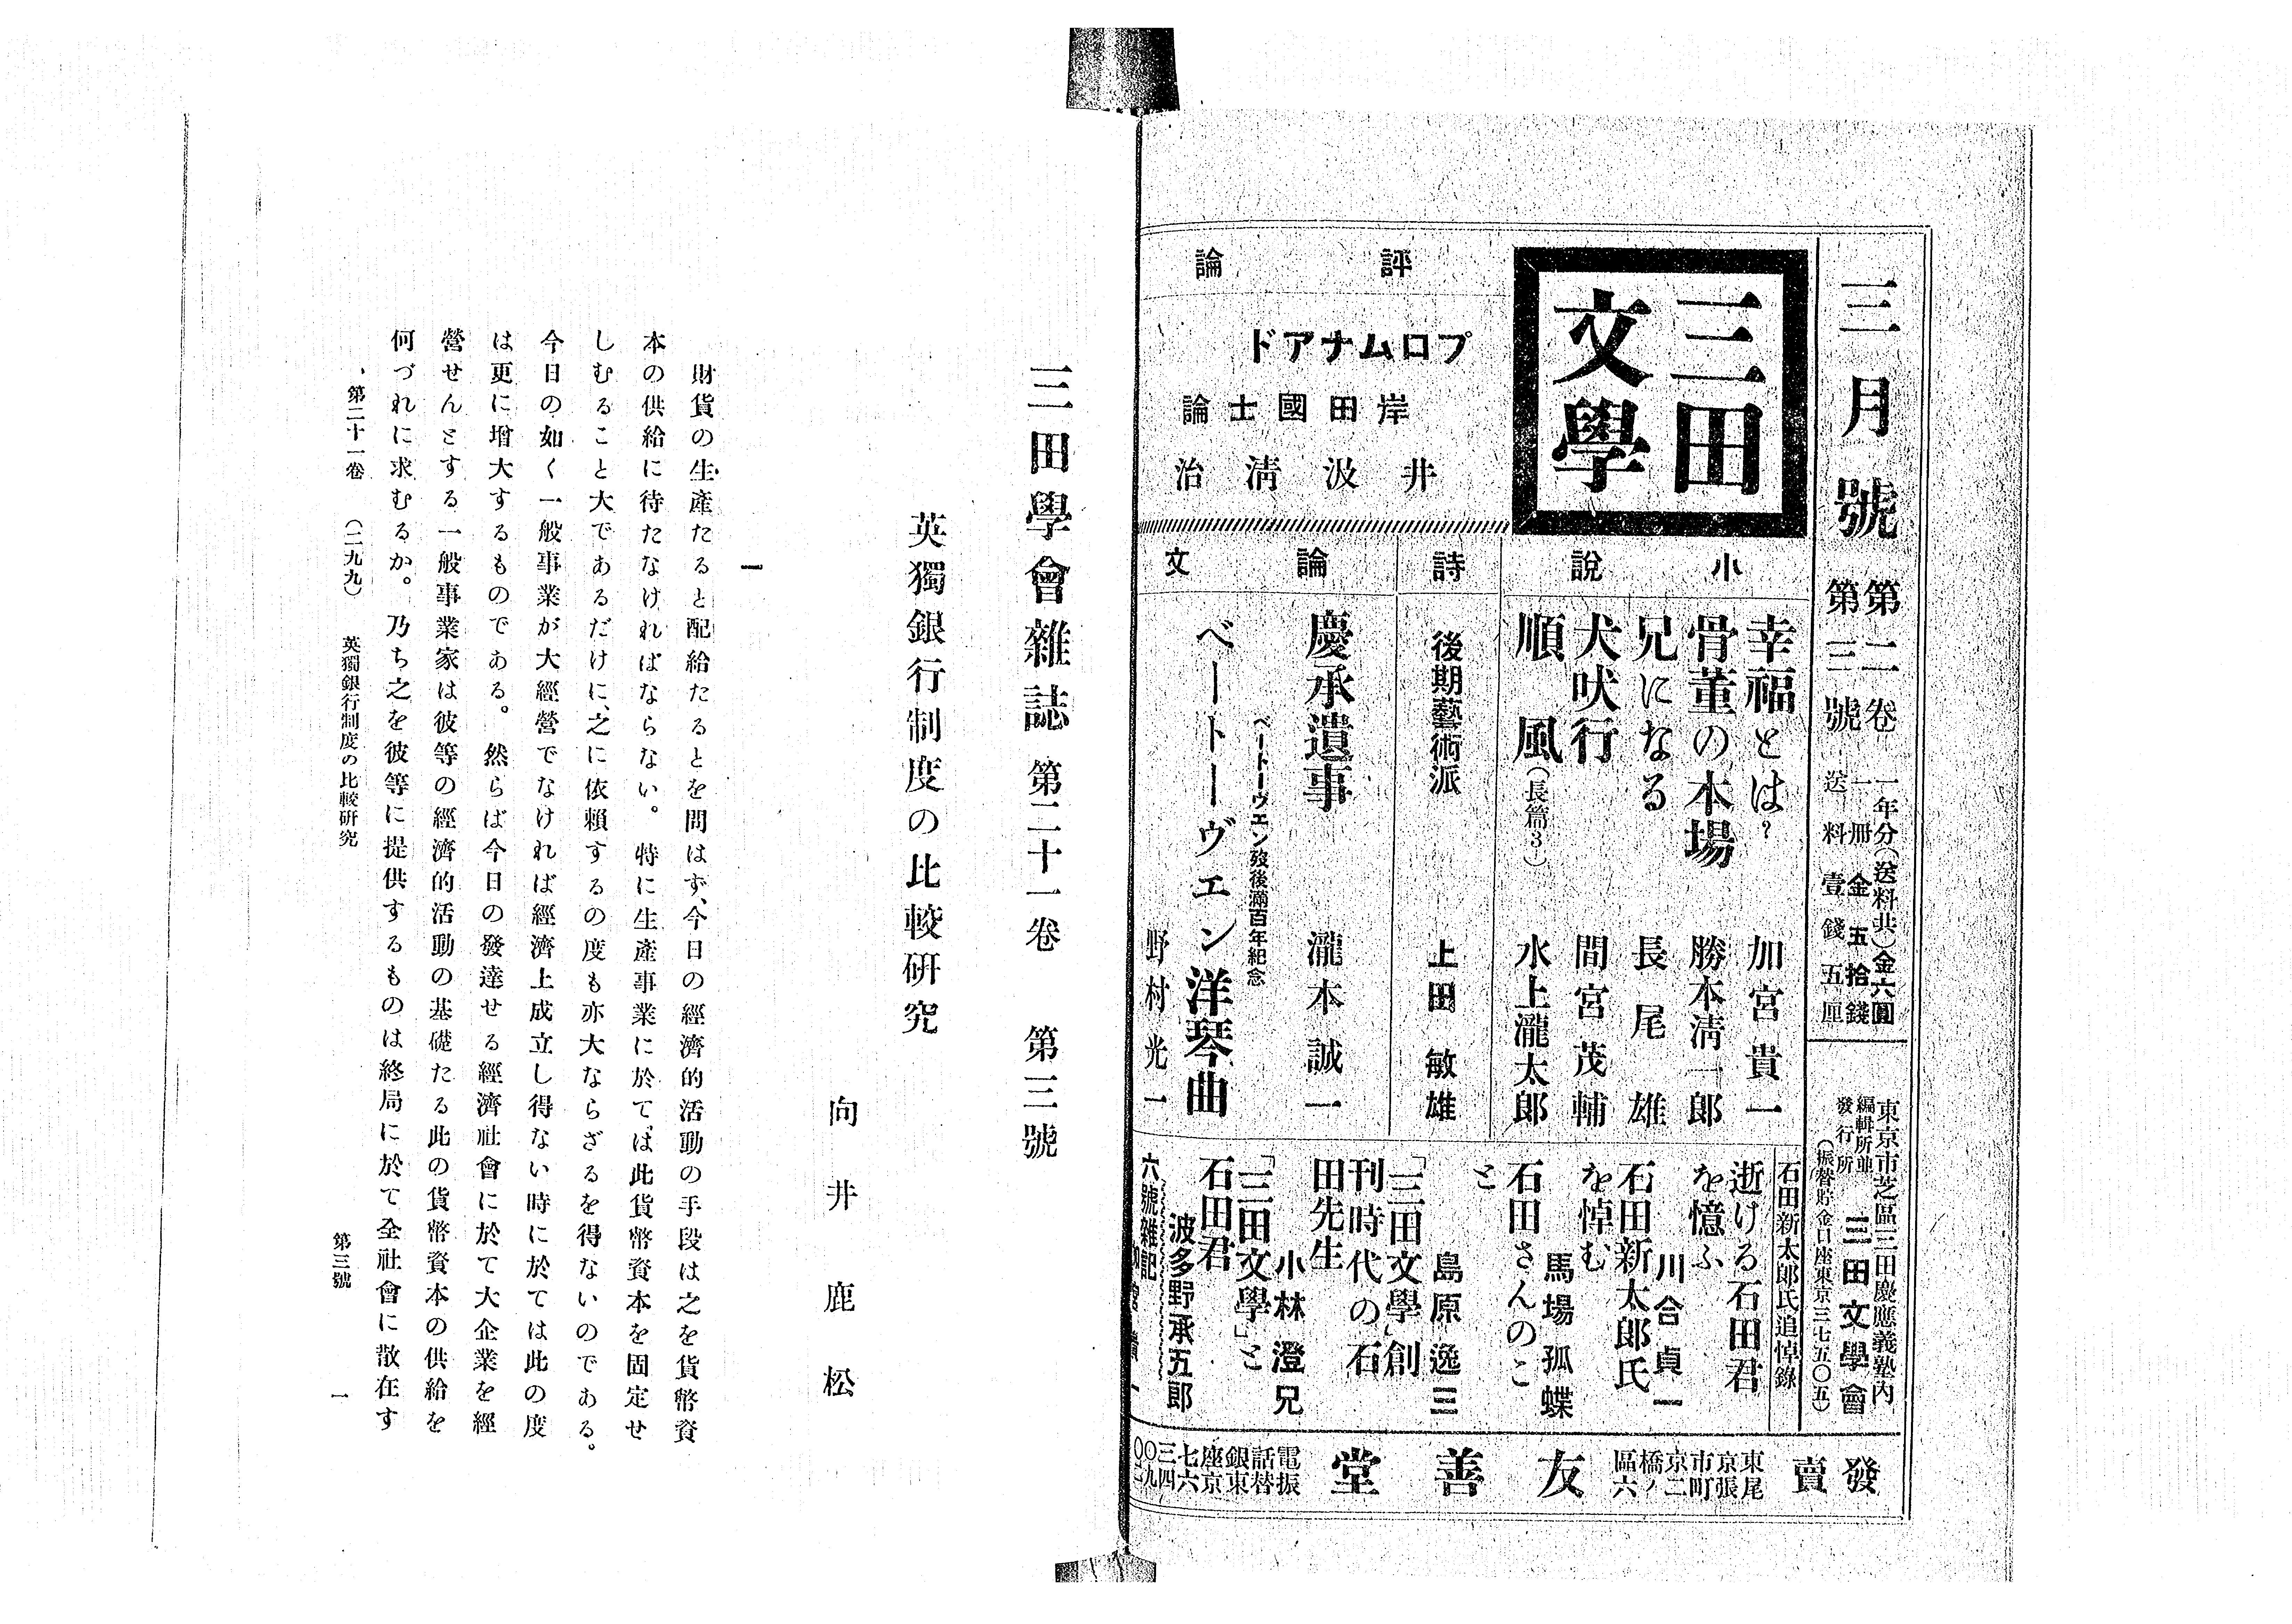 三月號
第二卷
第三號
一年分(送料共)金六圓
一冊金五拾錢
送料壹錢五厘
東京市芝區三田慶應義塾內
編輯所並
發行所
三田文學會
(振替貯金口座東京三七五〇五)
三田
文學
小說
幸福とは?
加宮貴一
骨董の本場
勝本清一郎
兄になる
長尾雄
犬吠行
間宮茂輔
順風(長篇3)
水上瀧太郎
詩
後期藝術派
上田敏雄
論文
慶承遺事
瀧本誠一
ベートーヴエン歿後滿百年紀念
ベートーヴェン洋琴曲
野村光一
評論
プロムナアド
岸田國士論
井汲淸治
石田新太郎氏追悼錄
逝ける石田君
を憶ふ
川合貞一
石田新太郎氏
を悼む
馬場孤蝶
石田さんのこ
と
島原逸三
「三田文學」創
刊時代の石
田先生
小林澄兄
「三田文學」と
石田君
波多野承五郎
六號雜記
發賣
東京市京橋區
尾張町二ノ六
友善堂
電話銀座七三〇〇
振替東京六四九二
三田學會雜誌 第二十一卷 第三號
英獨銀行制度の比較研究
向井鹿松
一
財貨の生產たると配給たるとを問はず、今日の經濟的活動の手段は之を貨幣資
本の供給に待たなければならない。特に生產事業に於ては此貨幣資本を固定せ
しむること大であるだけに、之に依賴するの度も亦大ならざるを得ないのである。
今日の如く一般事業が大經營でなければ經濟上成立し得ない時に於ては此の度
は更に增大するものである。然らば今日の發達せる經濟社會に於て大企業を經
營せんとする一般事業家は彼等の經濟的活動の基礎たる此の貨幣資本の供給を
何づれに求むるか。乃ち之を彼等に提供するものは終局に於て全社會に散在す
第二十一卷 (二九九) 英獨銀行制度の比較研究 第三號 一